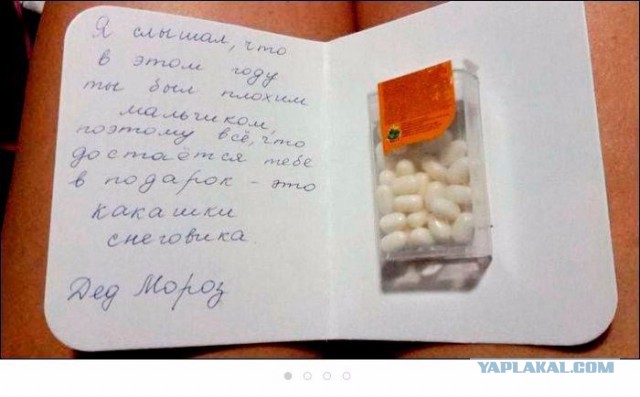 Я слышал, что
в этом году
ты был плохим
мальчиком,
поэтому всё, что
достаётся тебе
в подарок - это
какашки
снеговика.
Дед Мороз
YAPLAKAL.COM